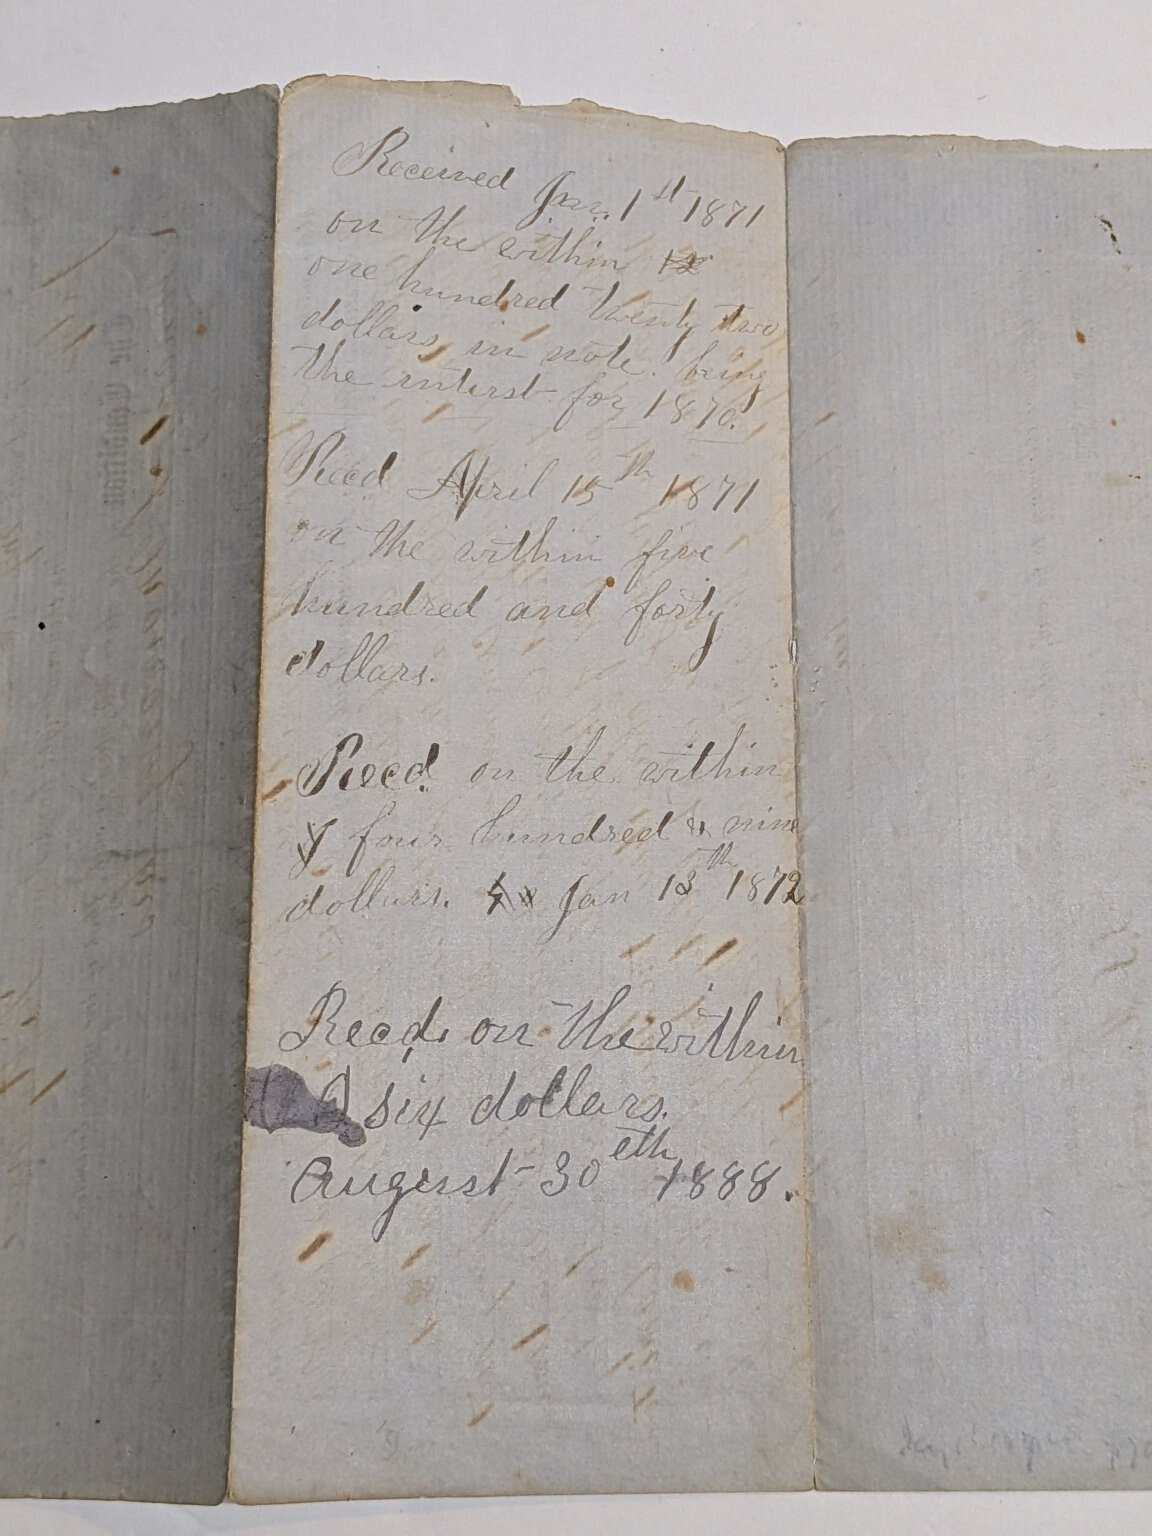 Received Jan. 1st 1871
on the within
one hundred twenty two
dollars in note. being
the interst for 1870.
Recd April 15th 1871
on the within five
hundred and forty
dollars.
Recd. on the within
four hundred & nine
dollars. Jan 13th 1872
Recd. on the within
six dollars.
August 30eth 1888.